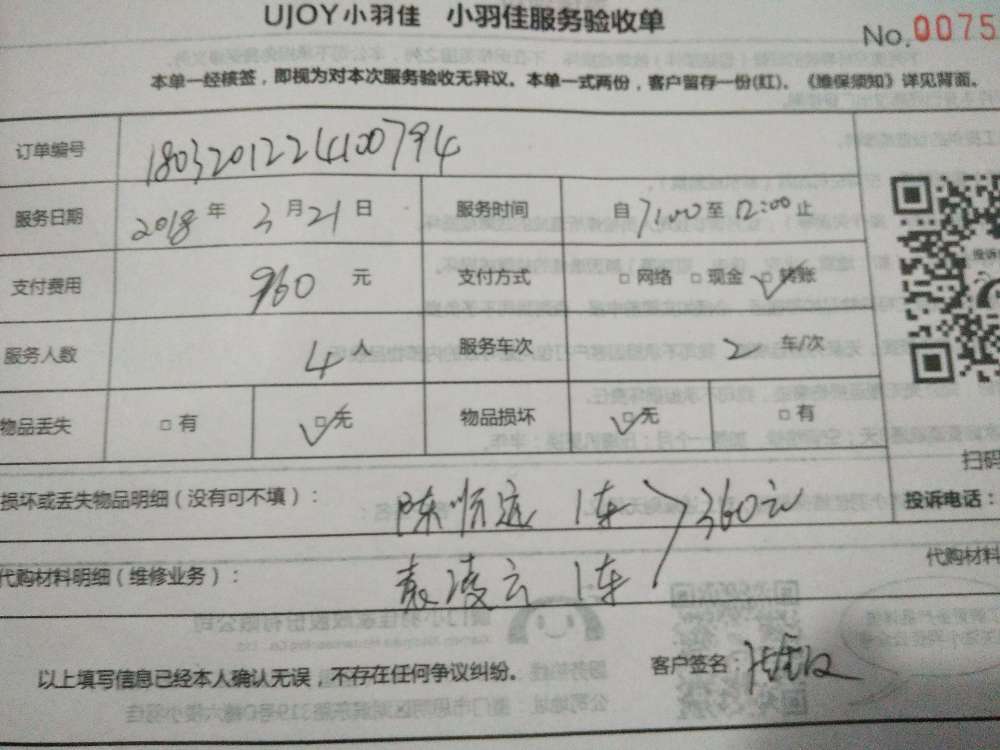 UJOY小羽佳 小羽佳服务验收单
No.0075
本单一经核签，即视为对本次服务验收无异议。本单一式两份，客户留存一份(红)。《维保须知》详见背面。
订单编号 1803201224100794
服务日期 2018年3月21日 服务时间 自7:00至12:00止
支付费用 960元 支付方式 □网络 □现金 □转账
服务人数 4人 服务车次 2车/次
物品丢失 □有 □无 物品损坏 □无 □有
扫码
损坏或丢失物品明细（没有可不填）： 陈顺远 1车 360元
投诉电话：
代购材料
代购材料明细（维修业务）： 袁凌云 1车
以上填写信息已经本人确认无误，不存在任何争议纠纷。 客户签名：